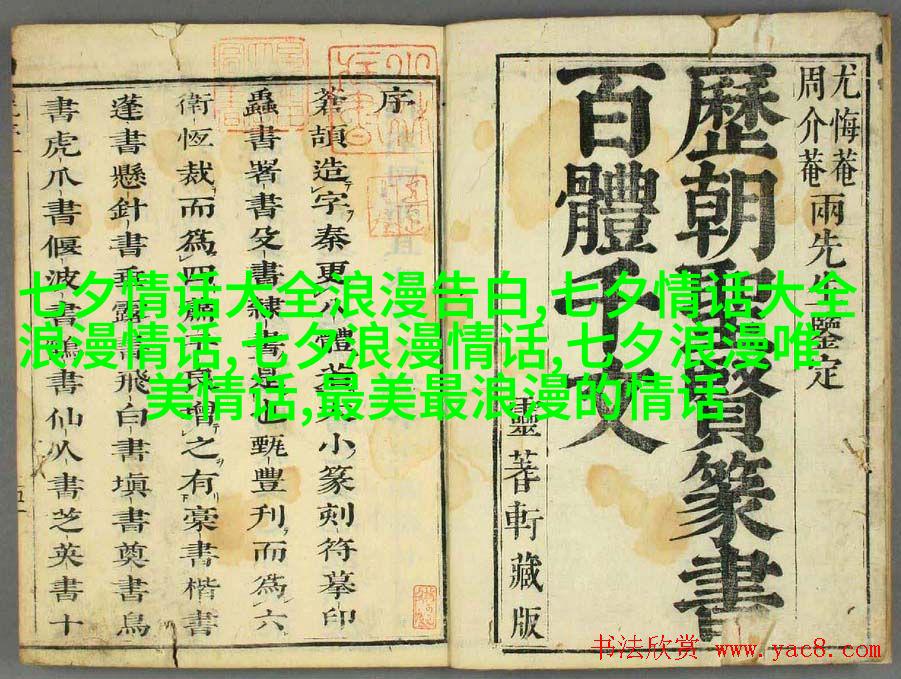 七夕情话大全浪漫告白,七夕情话大全
浪漫情话,七夕浪漫情话,七夕浪漫唯
美情话,最美最浪漫的情话
尤悔菴
周介菴
兩先生鑒定
歷朝聖賢篆書
百體千文
靈蓍軒藏版
序
蒼頡造字秦更八體小篆刻符摹印
蟲書署書殳書隸書是也甄豐刋而爲六
衛恆裁而爲四子良增之有藁書楷書
蓬書懸針書垂露書飛白書填書奠書鳥
書虎爪書偃波書鶴書仙人書芝英書十
书法欣赏 www.yac8.com